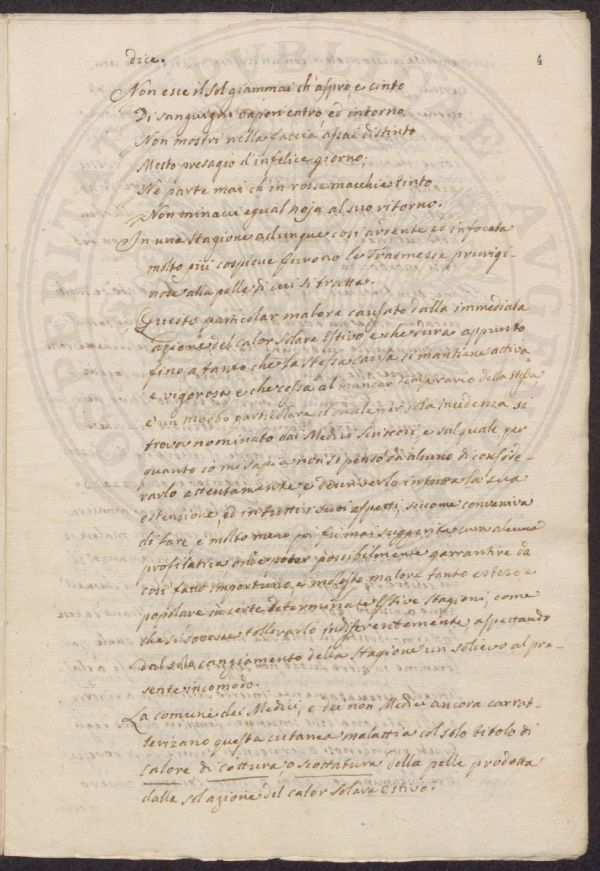 4
dice.
Non esce il Sol giammai ch'aspro, e cinto
Di sanguigni vapori entro, ed intorno,
Non mostri nella faccia assai distinto
Mesto presagio d'infelice giorno;
Ne parte mai ch'in rosse macchie tinto
Non minacci egual noja al suo ritorno.
In una Stagione adunque così ardente ed infocata
molto più cospicue furono le Trasmesse prurigi-
nose alla pelle di cui si tratta.
Questo particolar malore causato dalla immediata
azione del calor Solare Estivo, e che dura appunto
fino a tanto che la stessa causa si mantiene attiva
e vigorosa, e che cessa al mancar temprario della stessa,
è un morbo particolare il quale per sola incidenza si
trova nominato dai Medici Scrittori, e sul quale per
quanto io mi sapia non si pensò da alcuno di conside-
rarlo attentamente, e descriverlo in tutta la sua
estensione, ed in tutti i suoi aspetti, siccome conveniva
di fare, e molto meno poi fu mai suggerita cura alcuna
profilatica onde poter possibilmente garrantire da
così fatto importuno, e molesto malore tanto esteso e
popolare in certe determinate Estive Stagioni, come
che si dovesse tollerarlo indiferentemente aspettando
dal solo cangiamento della Stagione un solievo al pre-
sente incomodo.
La comune dei Medici, e dei non Medici ancora carrat-
terizano questa cutanea malattia col solo titolo di
calore di cottura o scottatura della pelle prodotta
dalla sol azione del calor Solare Estivo.